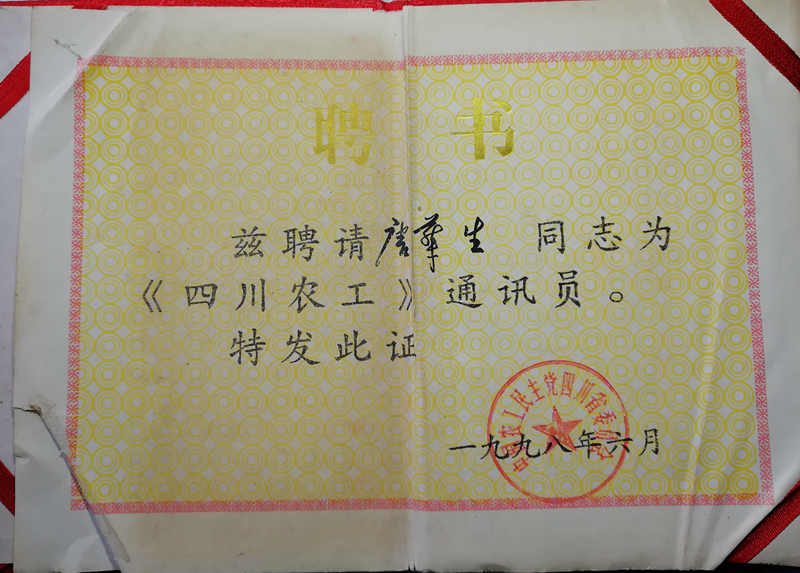 聘书
兹聘请唐华生 同志为
《四川农工》通讯员。
特发此证
中国农工民主党四川省委员会
一九九八年六月